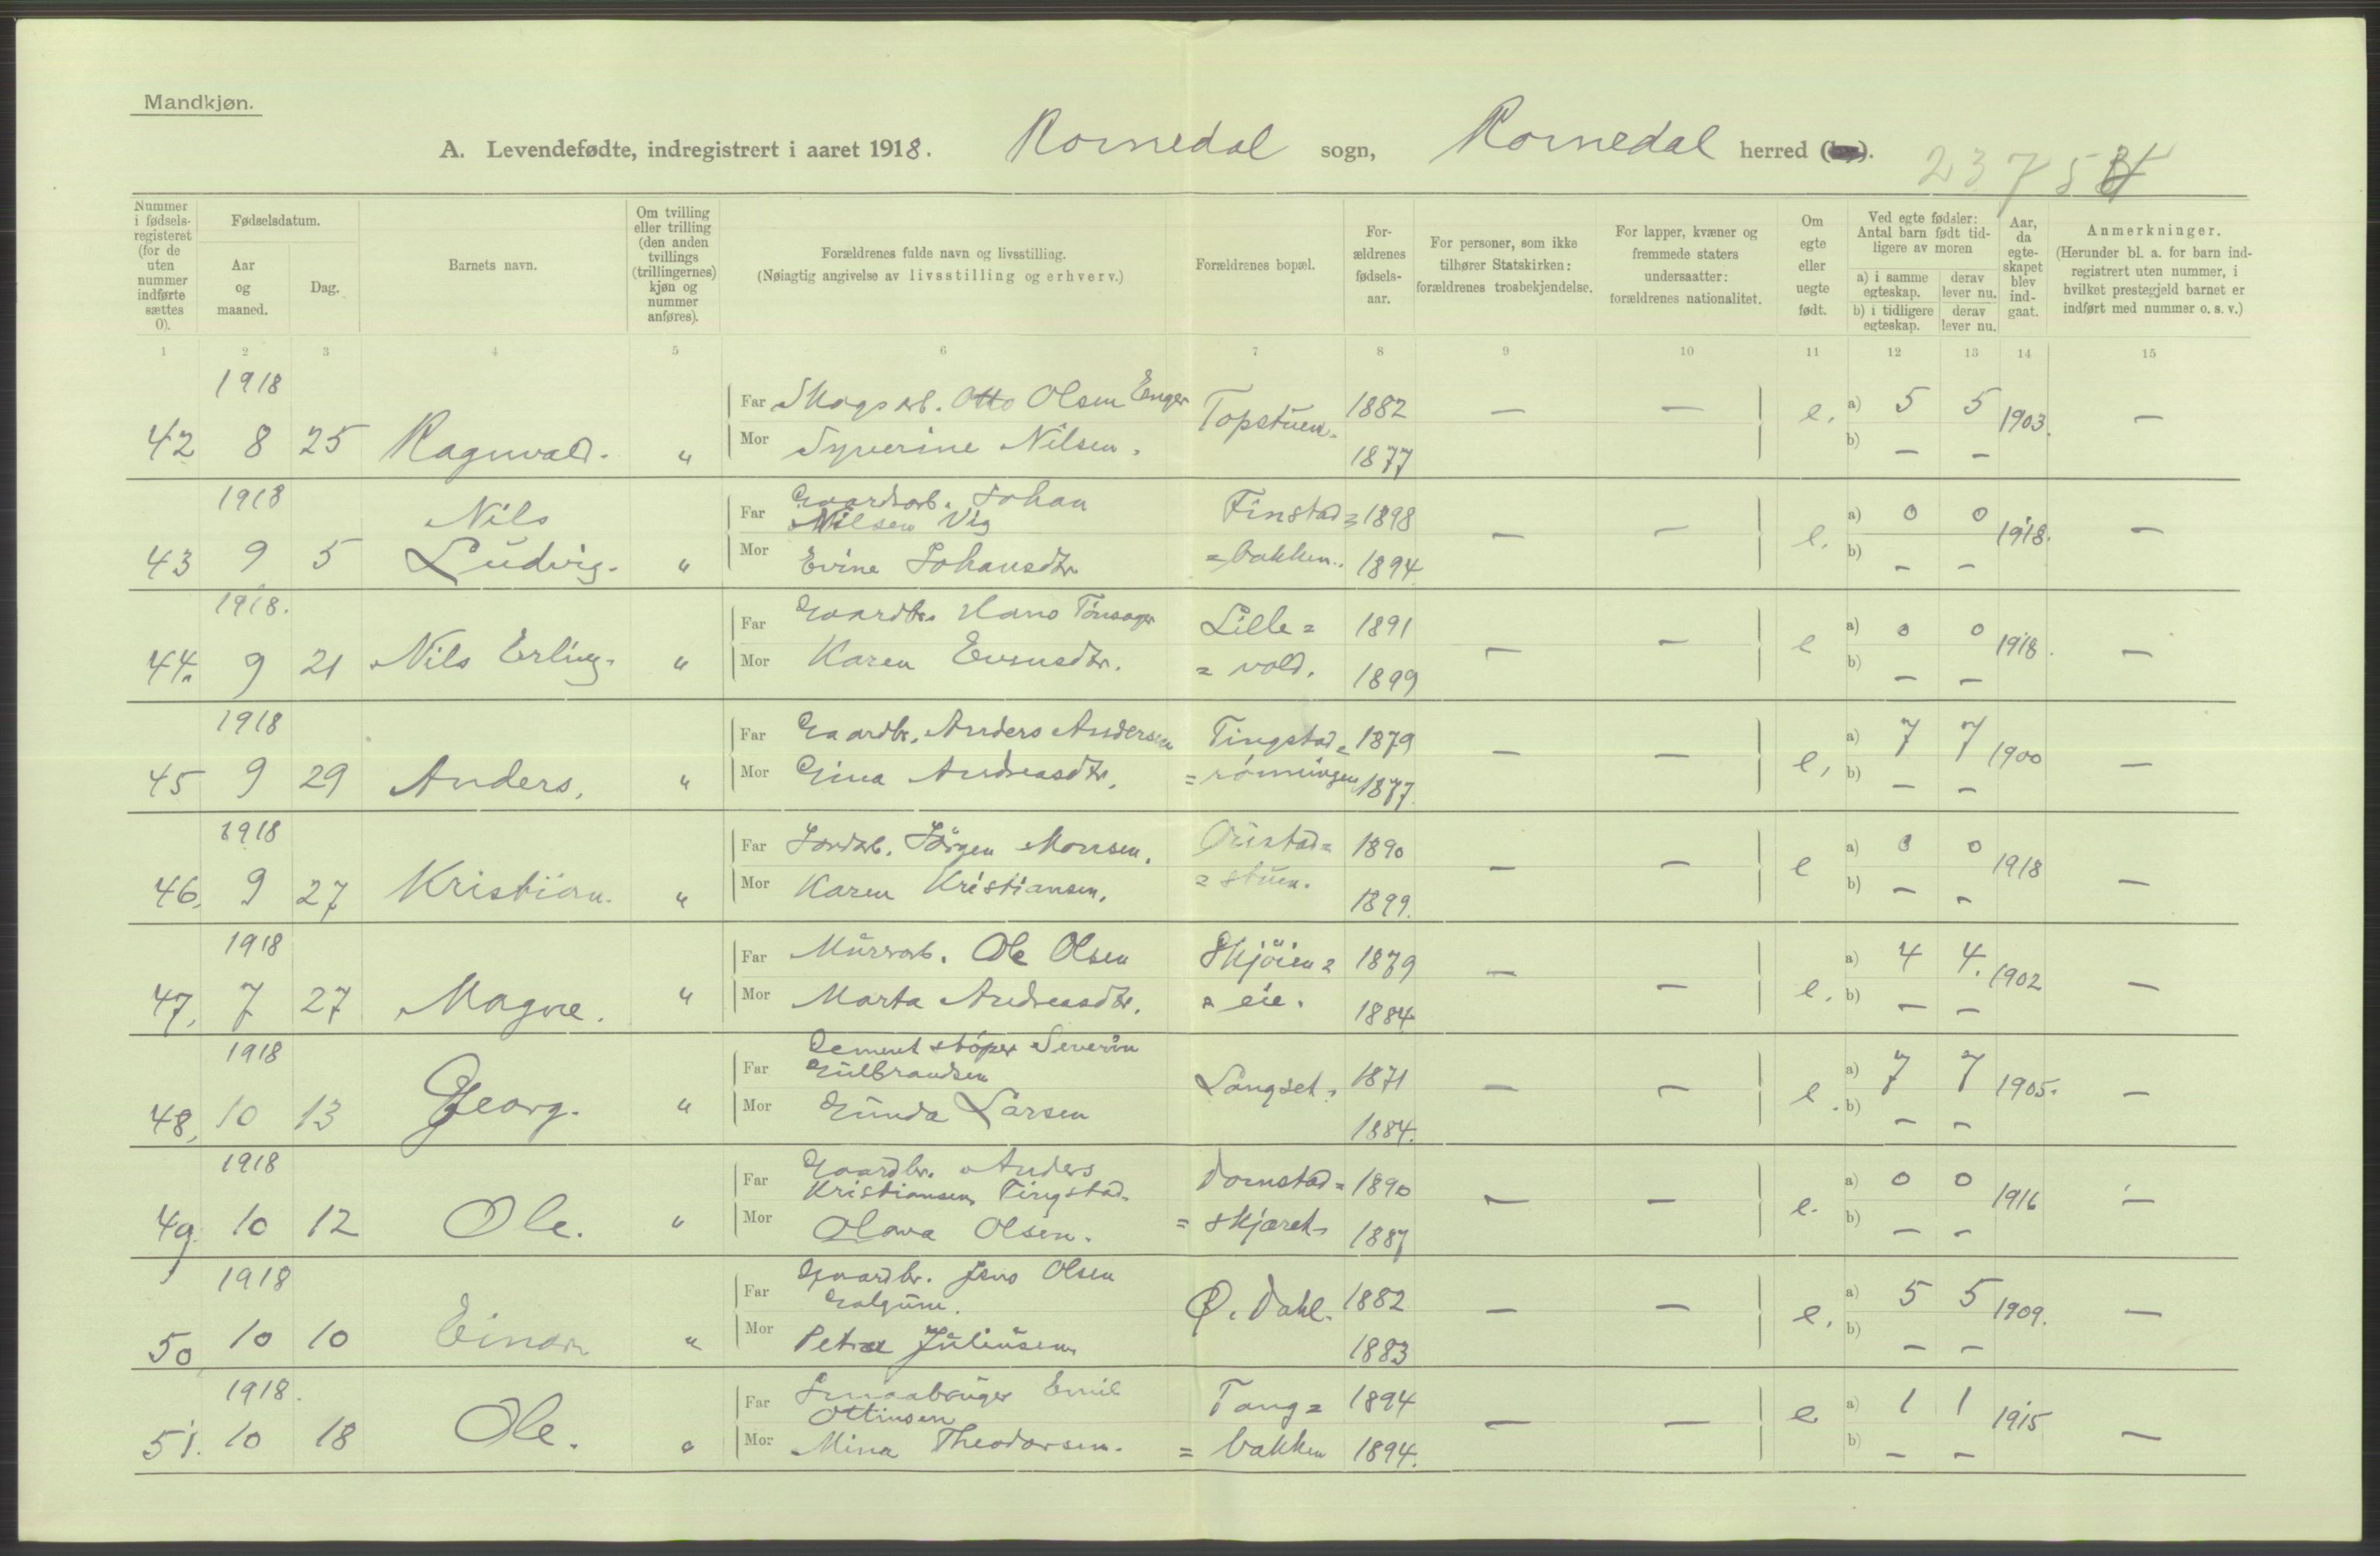 Mandkjøn.
A. Levendefødte, indregistrert i aaret 1918. Romedal sogn, Romedal herred
Nummer i fødsels-registeret (for de uten nummer indførte sættes 0).
Fødselsdatum.
Aar og maaned.
Dag.
Barnets navn.
Om tvilling eller trilling (den anden tvillings (trillingernes) kjøn og nummer anføres).
Forældrenes fulde navn og livsstilling.
(Nøiagtig angivelse av livsstilling og erhverv.)
Forældrenes bopæl.
For-ældrenes fødsels-aar.
For personer, som ikke tilhører Statskirken: forældrenes trosbekjendelse.
For lapper, kvæner og fremmede staters undersaatter: forældrenes nationalitet.
Om egte eller uegte født.
Ved egte fødsler: Antal barn født tid-ligere av moren
a) i samme egteskap. derav lever nu.
b) i tidligere egteskap. derav lever nu.
Aar, da egte-skapet blev ind-gaat.
Anmerkninger.
(Herunder bl. a. for barn ind-registrert uten nummer, i hvilket prestegjeld barnet er indført med nummer o. s. v.)
1 2 3 4 5 6 7 8 9 10 11 12 13 14 15
1918
Far Skogsarb. Otto Olsen Enger Topstuen. 1882 — — e. a) 5 5 1903. —
42 8 25 Ragnvald. " Mor Syverine Nilsen. 1877 b) — —
1918 Nils
Far Gaardsarb. Johan Nilsen Vig Finstad= 1898 — — e. a) 0 0 1918. —
43 9 5 Ludvig. " Mor Evine Johansdtr. =bakken. 1894 b) — —
1918.
Far Gaardbr. Hans Tönsager Lille= 1891 — — e a) 0 0 1918. —
44. 9 21 Nils Erling. " Mor Karen Evensdtr. =vold. 1899 b) — —
1918
Far Gaardbr. Anders Andersen Tingstad= 1879 — — e, a) 7 7 1900 —
45 9 29 Anders. " Mor Gina Andreasdtr. =rönningen 1877. b) — —
1918
Far Jordarb. Jörgen Monsen. 1890 — — e a) 0 0 1918 —
46, 9 27 Kristian. " Mor Karen Kristiansen. =stuen. 1899. b) — —
1918
Far Murarb. Ole Olsen Skjöien= 1879 — — e. a) 4 4. 1902 —
47, 7 27 Magne. " Mor Marta Andreasdtr. =eie. 1884 b) — —
1918
Far Cementstöper Severin Gulbrandsen Langset. 1871 — — e. a) 7 7 1905. —
48, 10 13 Georg. " Mor Gunda Larsen 1884. b) — —
1918
Far Gaardbr. Anders Kristiansen Tingstad. Dornstad= 1890 — — e. a) 0 0 1916 —
49. 10 12 Ole. " Mor Olava Olsen. =skjæret. 1887 b) — —
1918
Far Gaardbr. Jens Olsen Galgum. Ø. Dahl. 1882 — — e. a) 5 5 1909. —
50 10 10 Einar " Mor Petra Juliusen 1883 b) — —
1918.
Far Smaabruger Emil Ottinsen Tang= 1894 — — e a) 1 1 1915 —
51. 10 18 Ole. " Mor Mina Theodorsen. =bakken 1894. b) — —